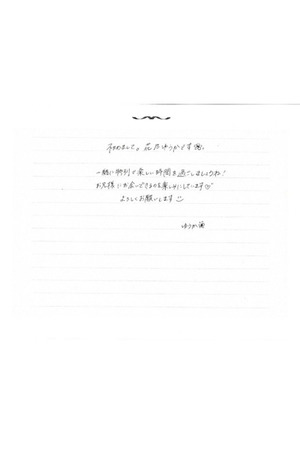 初めまして。花乃ゆうかです
一緒に特別で楽しい時間を過ごしましょうね!
お兄様にお会いできるのを楽しみにしています♡
よろしくお願いします
ゆうか